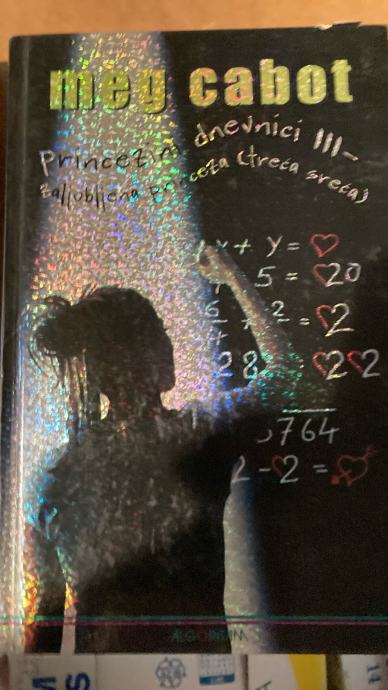 meg cabot
Princezini dnevnici III-
zaljubljena princeza (treća sreća)
x + y = ♡
5 = ♡20
6 2 = ♡2
28 ♡2♡2
764
2 - ♡2 = ♡
ALGORITAM